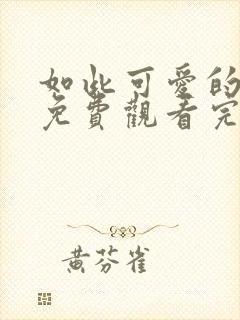 如此可愛的
免費觀看完
黃芬雀